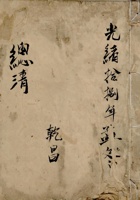 光緒拾捌年
乾昌
總清